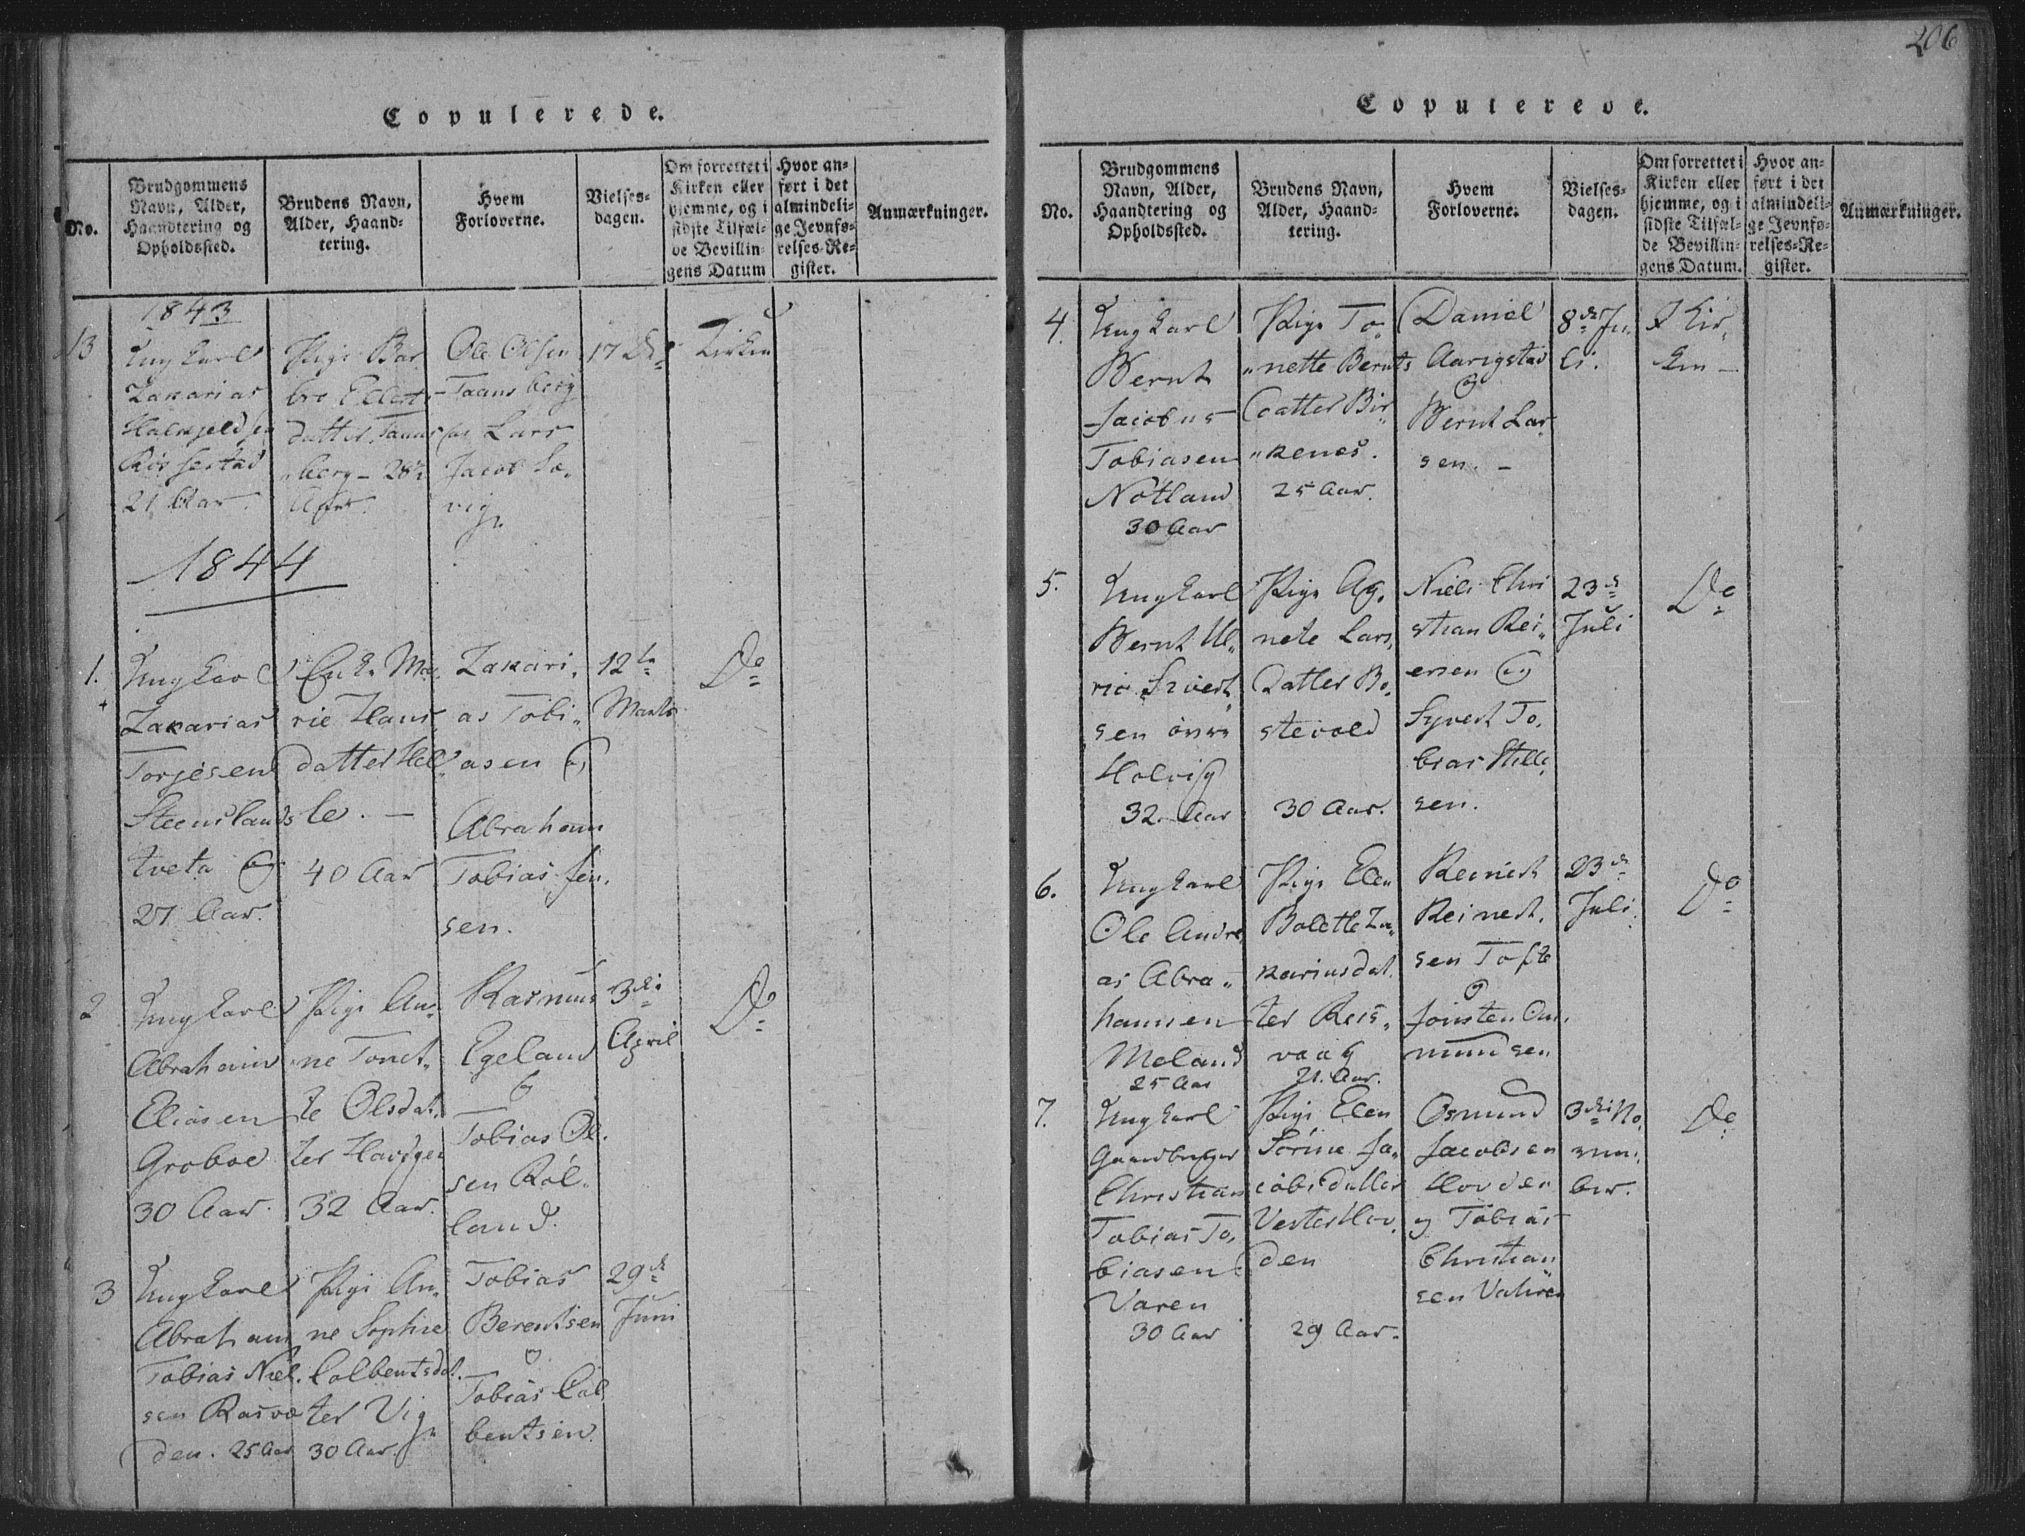 206
Copulerede.
No.
Brudgommens
Navn, Alder,
Haandtering og
Opholdssted.
Brudens Navn,
Alder, Haand-
tering.
Hvem
Forloverne.
Vielses-
dagen.
Om forrettet i
Kirken eller
hjemme, og i
sidste Tilfæl-
de Bevillin-
gens Datum
Hvor an-
ført i det
almindeli-
ge Jevnfø-
relses-Re-
gister.
Anmærkninger.
1843
13
Ungkarl
Zakarias
Rössestad
21 Aar.
Pige Bar
bro
datter Tauns
berg - 28½
Aar.
Ole Olsen
Taunsberg
Lars
Jacob Sæ-
vig.
17 De
Kirken
1844
1.
Ungkarl
Zakarias
Torjesen
Steenslands
tveta og
27 Aar.
Enke Ma-
rie Hans
datter Hel
le. -
40 Aar
Zakari-
as Tobi-
asen og
Abraham
Tobias Jen.
sen.
12te
Marts
Do
2
Ungkarl
Abraham
Eliasen
Groboe
30 Aar.
Pige An-
ne Tonet-
te Olsdat
ter
32 Aar.
Rasmus
Egeland
og
Tobias Ol.
sen Röl-
land.
3die
April
Do
3
Ungkarl
Abraham
Tobias Niel.
sen Rosvo
den. 25 Aar
Pige An-
ne Sophie
Colbentsdat.
ter Vig.
30 Aar.
Tobias
Berentsen
og
Tobias Col
bentsen.
29de
Juni
Copulerede.
No.
Brudgommens
Navn, Alder,
Haandtering og
Opholdssted.
Brudens Navn,
Alder, Haand-
tering.
Hvem
Forloverne.
Vielses-
dagen.
Om forrettet i
Kirken eller
hjemme, og i
sidste Tilfæl-
de Bevillin-
gens Datum.
Hvor an-
ført i det
almindeli-
ge Jevnfø-
relses-Re-
gister.
Anmærkninger.
4.
Ungkarl
Bernt
Jacobus
Tobiasen
Nötland
30 Aar
Pige To-
nette Bernts
Datter Bir
kenes.
25 Aar.
Daniel
Aarigstad
og
Bernt Lar
sen. -
8de Ju
li.
I Kir-
ken -
5.
Ungkarl
Bernt Ul-
ric Sivert
sen övre
Holvig
32 Aar
Pige Ag-
nete Lars
Datter Bo-
stevold
30 Aar.
Niels Chri
stian Rei-
ersen og
Syvert To-
bias Helle-
sen.
23de
Juli
Do
6.
Ungkarl
Ole Andre
as Abra-
hamsen
Meland
25 Aar
Pige Elen
Bolette Za-
kariasdat.
ter Reis-
vaag
21. Aar.
Reinert
Reinert-
sen Tofte
og
Jonsten Om.
mundsen
23de
Juli.
Do
7.
Ungkarl
Gaardbruger
Christian
Tobias To-
biasen
Varen
30 Aar
Pige Elen
Sörine Ja-
cobsdatter
Vesterhov-
den
29 Aar.
Osmund
Jacobsen
Hovden
og Tobias
Christian
sen
3die No-
vem-
ber.
Do